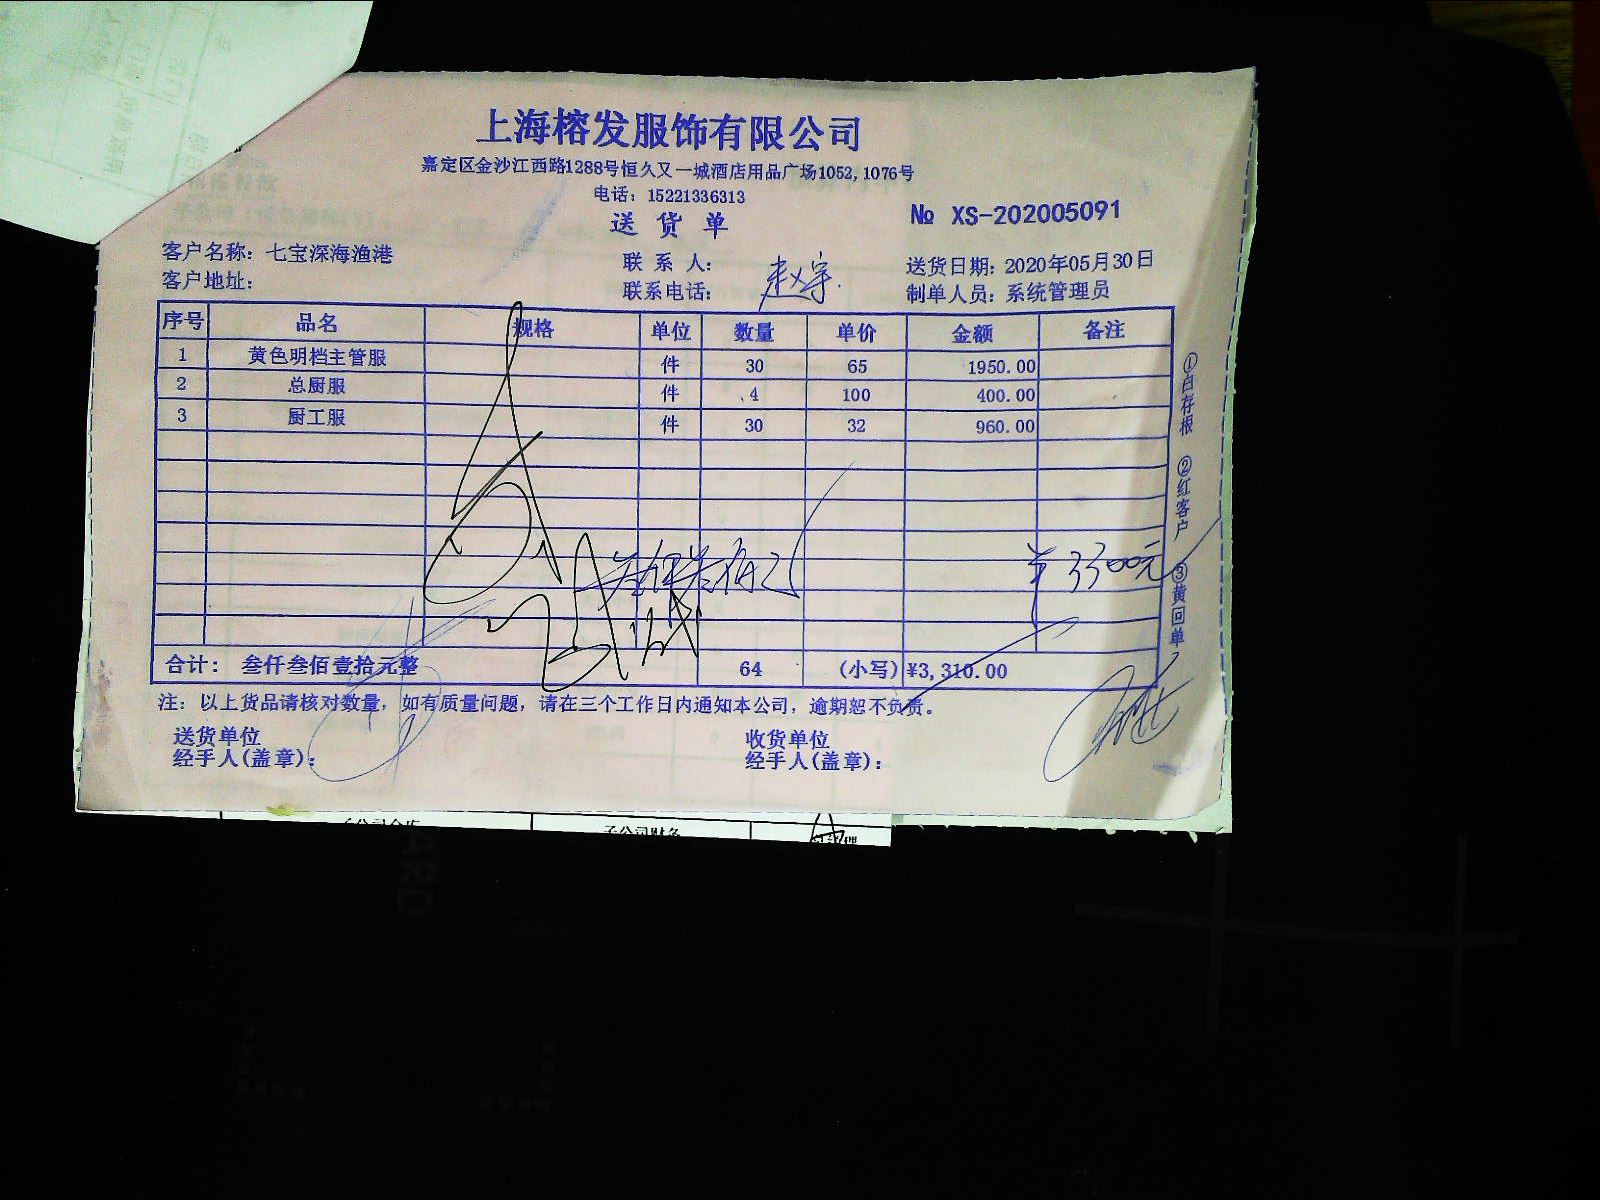 上海榕发服饰有限公司
嘉定区金沙江西路1288号恒久又一城酒店用品广场1052,1076号
电话：15221336313
送货单
№ XS-202005091
客户名称：七宝深海渔港 联系人： 送货日期：2020年05月30日
客户地址： 联系电话： 赵宇 制单人员：系统管理员
序号 品名 规格 单位 数量 单价 金额 备注
1 黄色明档主管服 件 30 65 1950.00
2 总厨服 件 4 100 400.00
3 厨工服 件 30 32 960.00
¥3300元
合计： 叁仟叁佰壹拾元整 64 (小写) ¥3,310.00
注：以上货品请核对数量，如有质量问题，请在三个工作日内通知本公司，逾期恕不负责。
送货单位 收货单位
经手人(盖章)： 经手人(盖章)：
①白存根 ②红客户 ③黄回单
子公司财务